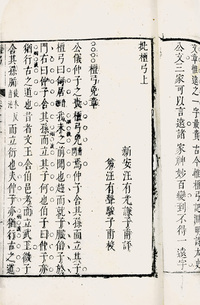 公文三家可以言遠諸家神妙百變到不得一遠字
批檀弓上
新安汪有光謙子甫評
汪有聲駿子甫校
檀弓免章
公儀仲子之喪檀弓免焉仲子舍其孫而立其子
檀弓曰何居我未之前聞也趨而就子服伯子於
門右曰仲子舍其孫而立其子何也伯子曰仲子亦
猶行古之道也昔者文王舍伯邑考而立武王微子
舍其孫腯而立衍也夫仲子亦猶行古之道